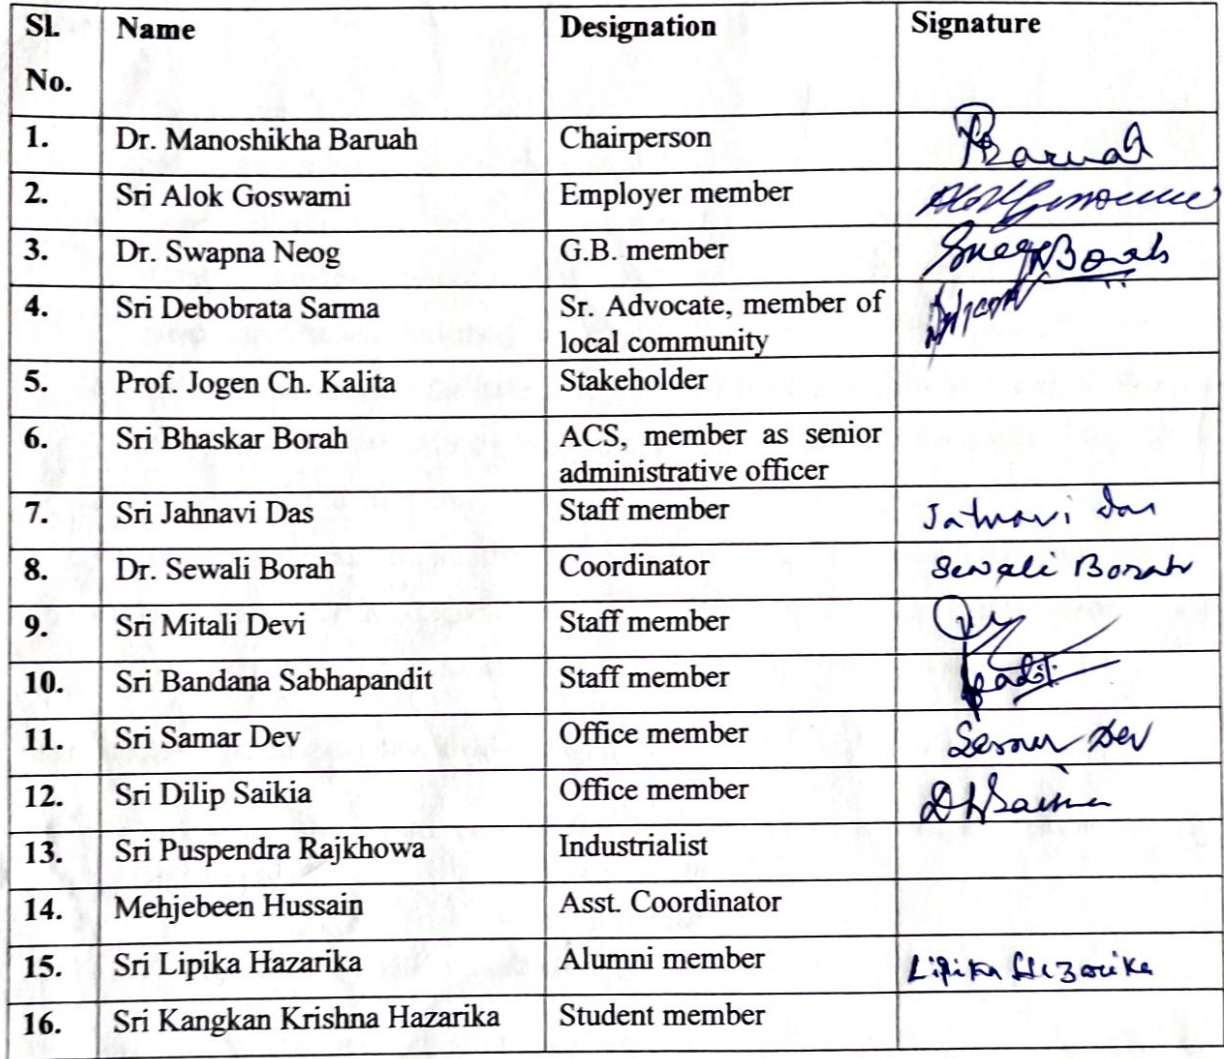 Sl. Name Designation Signature
No.
1. Dr. Manoshikha Baruah Chairperson Baruah
2. Sri Alok Goswami Employer member Alok Goswami
3. Dr. Swapna Neog G.B. member Borah
4. Sri Debobrata Sarma Sr. Advocate, member of
local community
5. Prof. Jogen Ch. Kalita Stakeholder
6. Sri Bhaskar Borah ACS, member as senior
administrative officer
7. Sri Jahnavi Das Staff member Jahnavi Das
8. Dr. Sewali Borah Coordinator Sewali Borah
9. Sri Mitali Devi Staff member
10. Sri Bandana Sabhapandit Staff member
11. Sri Samar Dev Office member Samar Dev
12. Sri Dilip Saikia Office member DSaikia
13. Sri Puspendra Rajkhowa Industrialist
14. Mehjebeen Hussain Asst. Coordinator
15. Sri Lipika Hazarika Alumni member Lipika Hazarika
16. Sri Kangkan Krishna Hazarika Student member